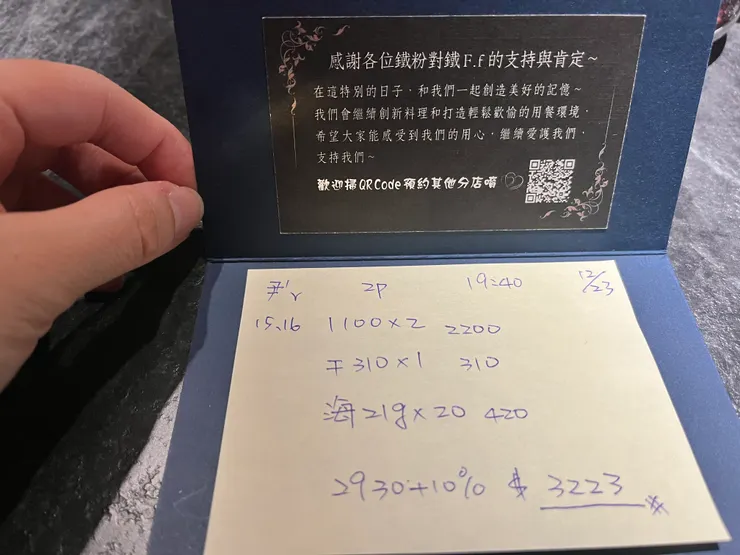 感謝各位鐵粉對鐵F.f的支持與肯定~
在這特別的日子，和我們一起創造美好的記憶~
我們會繼續創新料理和打造輕鬆歡愉的用餐環境，
希望大家能感受到我們的用心，繼續愛護我們，
支持我們~
歡迎掃QRCode預約其他分店唷
2P 19:40 12/23
15.16 1100×2 2200
310×1 310
海 21g×20 420
2930+10% $ 3223